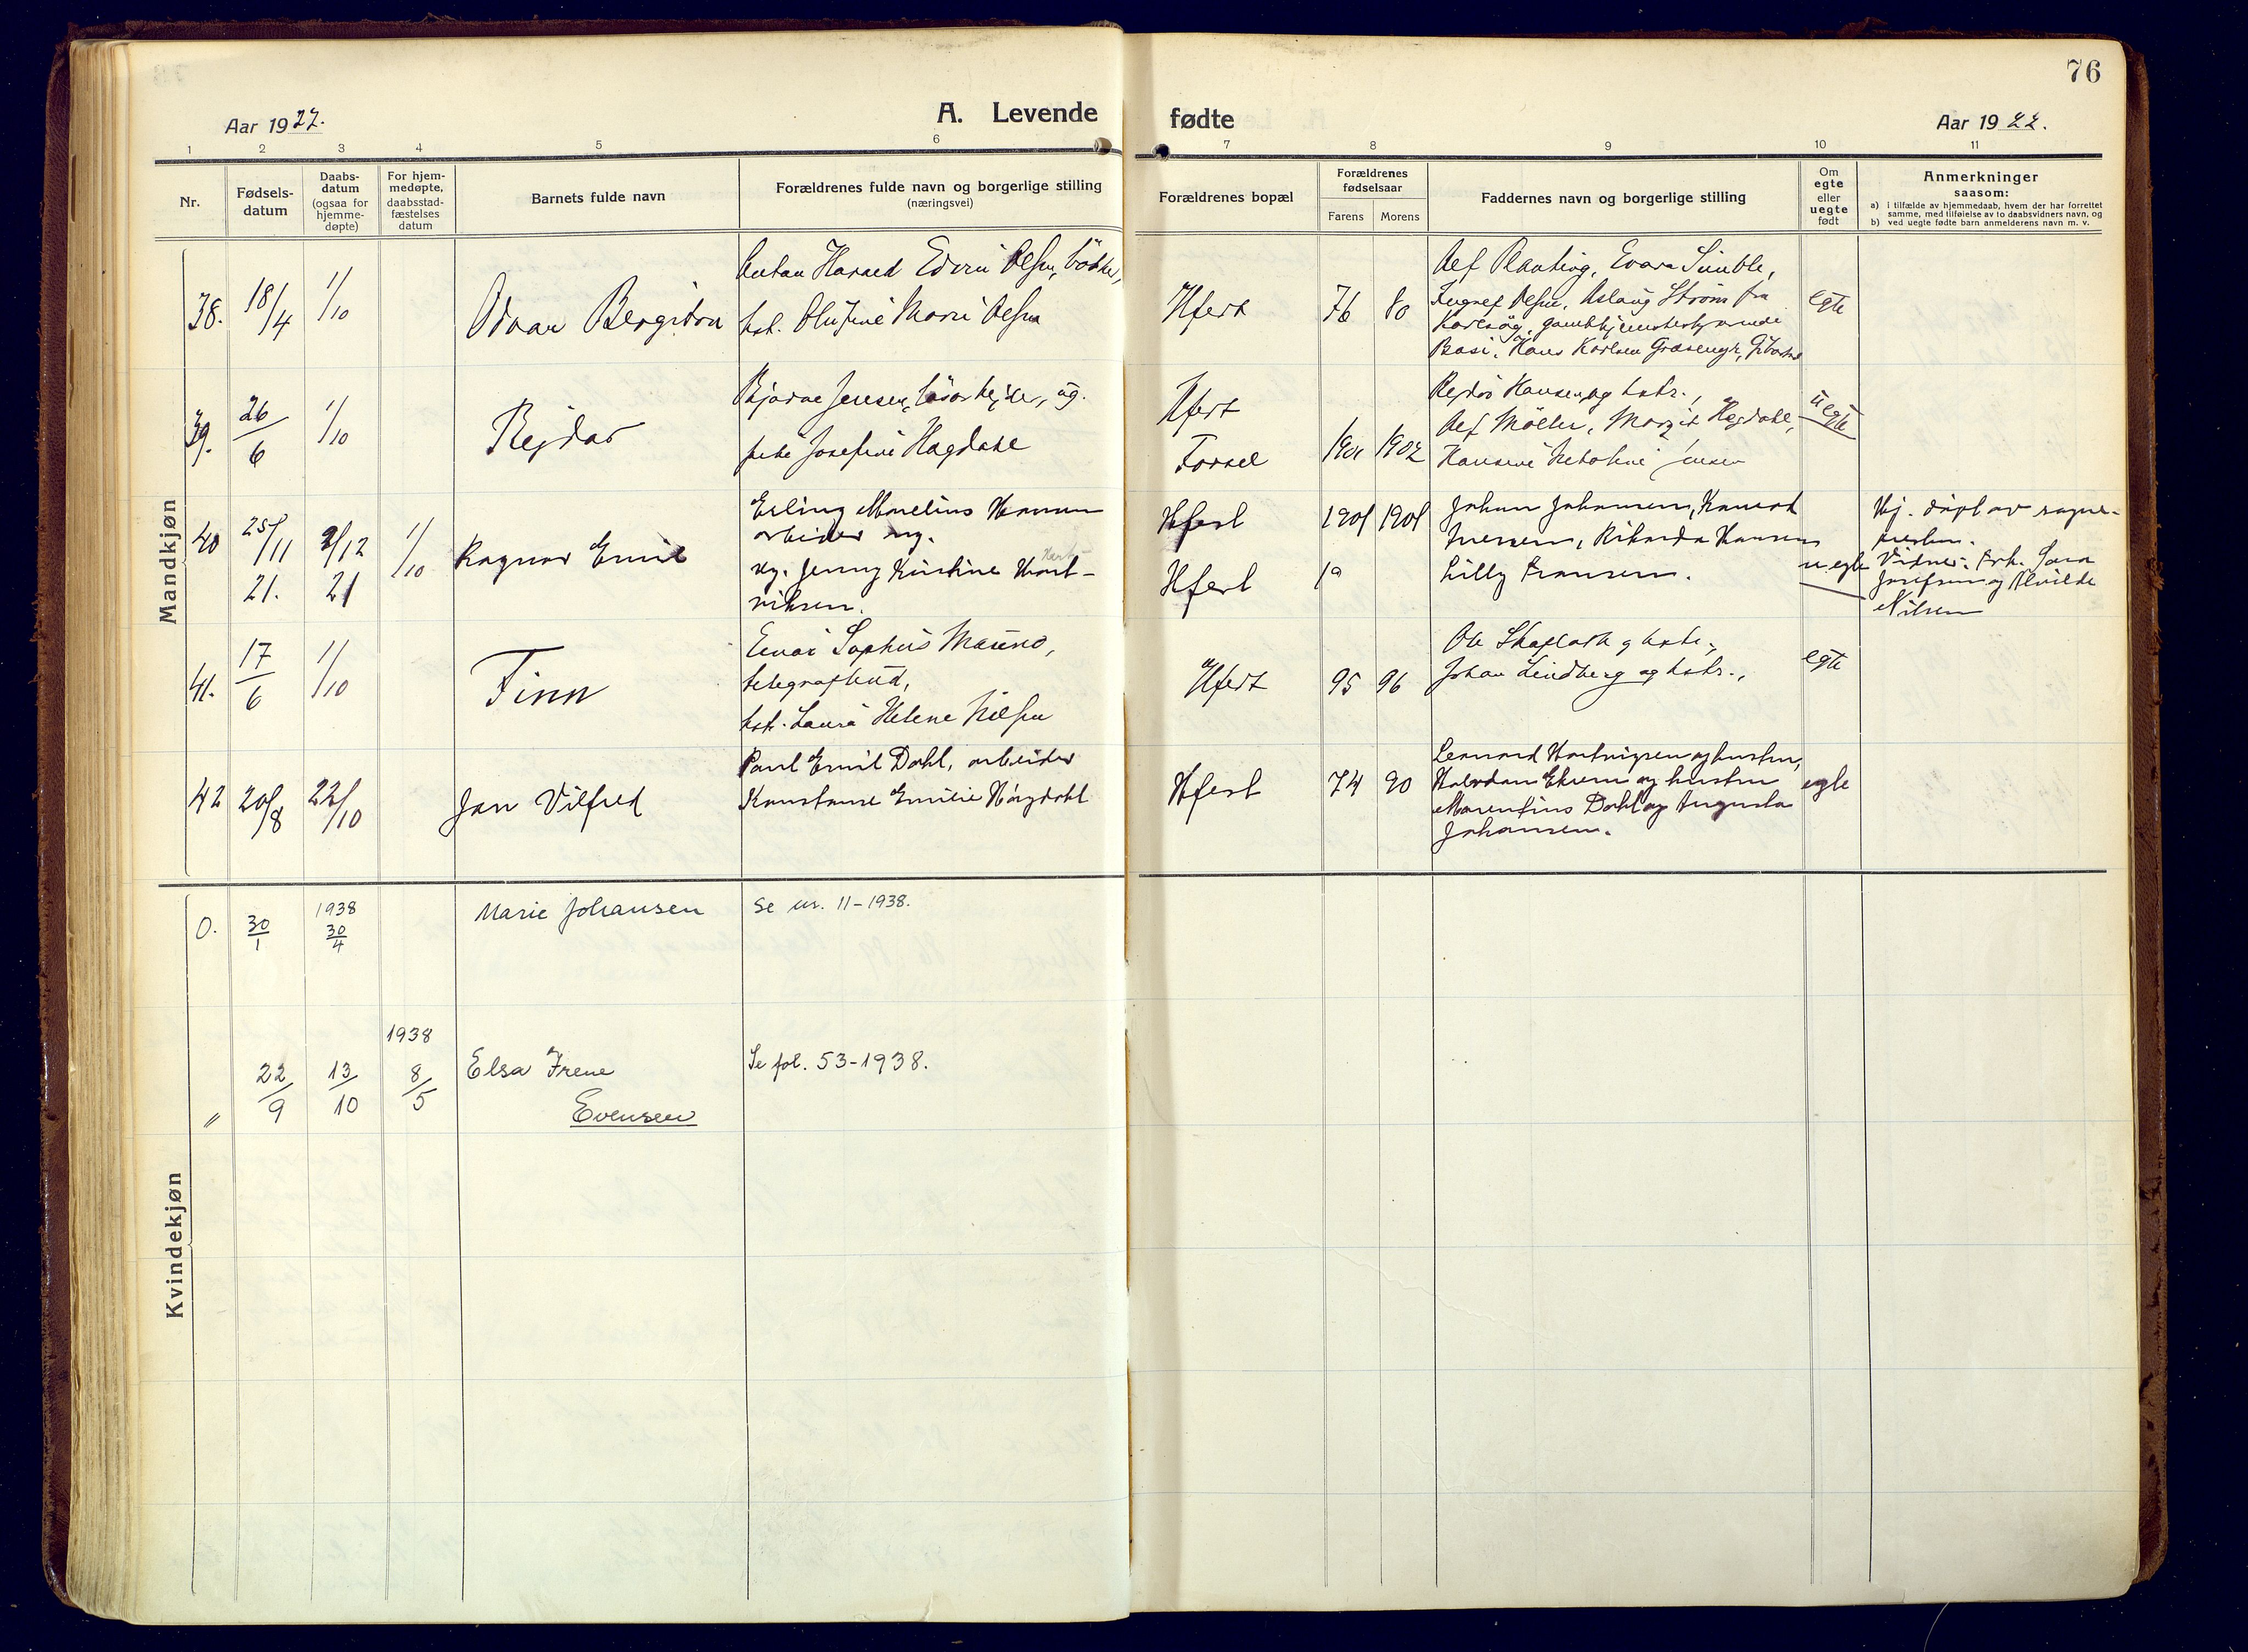 76
Aar 1922.
A. Levende
fødte
Aar 1922.
1 2 3 4 5 6 7 8 9 10 11
Nr.
Fødsels-
datum
Daabs-
datum
(ogsaa for
hjemme-
døpte)
For hjem-
medøpte,
daabsstad-
fæstelses
datum
Barnets fulde navn
Forældrenes fulde navn og borgerlige stilling
(næringsvei)
Forældrenes bopæl
Forældrenes
fødselsaar
Farens Morens
Faddernes navn og borgerlige stilling
Om
egte
eller
uegte
født
Anmerkninger
saasom:
a) i tilfælde av hjemmedaab, hvem der har forrettet
samme, med tilføielse av to daabsvidners navn, og
b) ved uegte fødte barn anmelderens navn m. v.
Mandkjøn
38. 18/4 1/10
Odvar
Anton Harald Edvin Olsen,
Marie Olsen
Hfest
76 80
Aslaug Strøm fra
Hans Karlsen
egte
39. 26/6 1/10
Rejdar
Bjarne Jensen, løsarbejder, ug.
pike Josefine Hagdahl
Hfest
1901 1902
Hansen og hstr.,
Møller, Margit Hagdahl,
Jensen
uegte
40 25/11 21. 9/12 21 1/10
Ragnar Emil
Erling Marelius Hansen
arbeider ug.
ug. Jenny Kristine Hart-
viksen.
Hfest
Hfest
1901 1901
Johan Johansen, Konrad
Iversen, Rikarda Hansen
Lilly Fransen.
uegte
Hj. døpt av sogne-
presten.
Vidner: Frk. Sara
Josefsen og Alvilde
Nilsen
41. 17/6 1/10
Finn
Einar Sophus
telegrafbud,
hst. Laura Helene Nilsen
Hfest
95 96
Johan Lindberg og hstr.,
egte
42 20/8 22/10
Jan Vilfred
Paul Emil Dahl, arbeider
Konstanse Emilie Høgdahl
Hfest
74 90
Leonard Hartvigsen og hustru,
Halvdan Ekrem og hustru
Marentius Dahl og Augusta
Johansen.
egte
Kvindekjøn
0. 30/1 1938 30/4
Marie Johansen
Se nr. 11-1938.
1938
" 22/9 13/10 8/5
Elsa Irene
Evensen
Se fol. 53-1938.